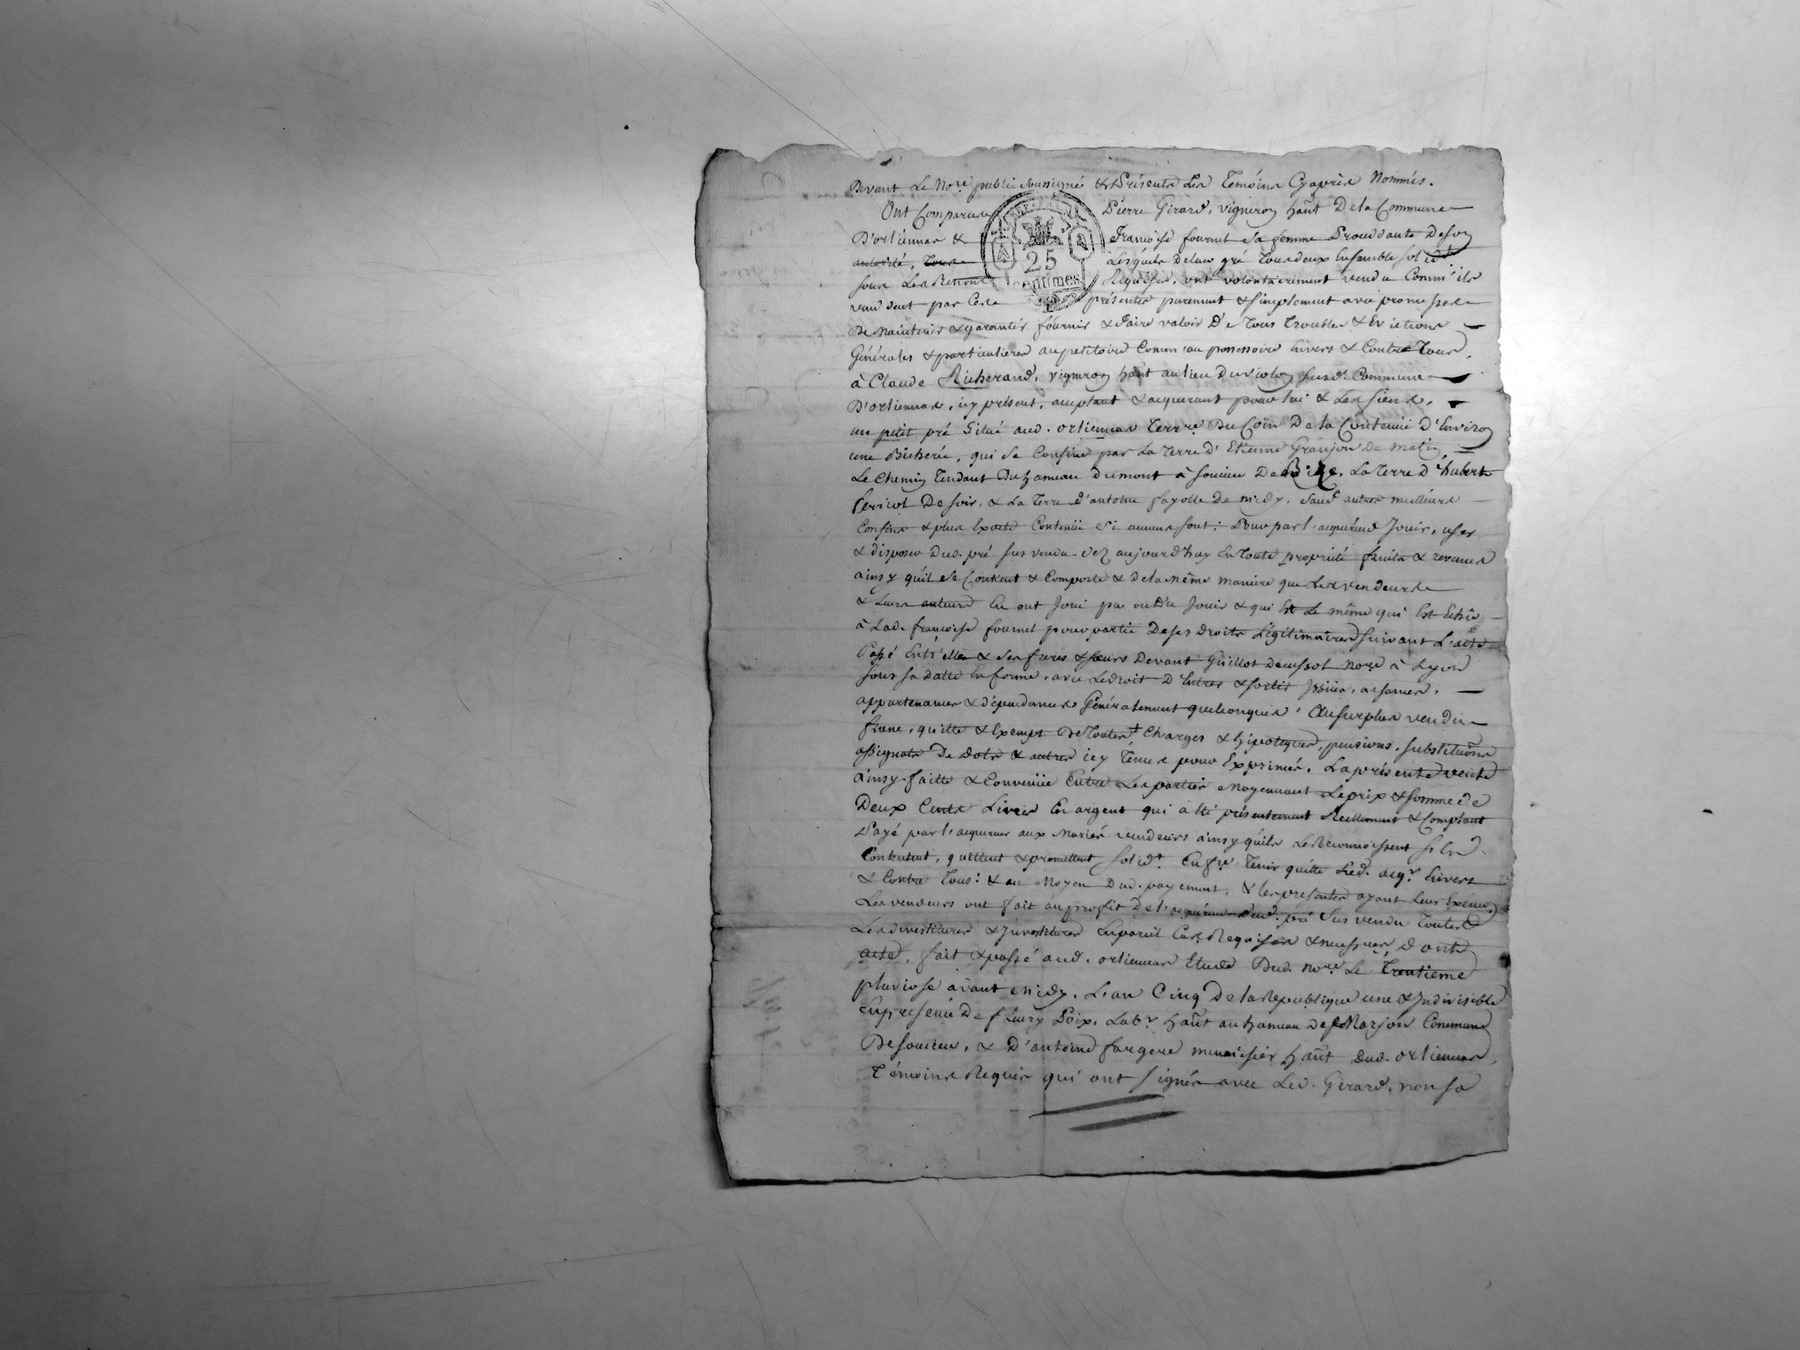 Devant Le No.re public Soussigné & Présents Les Témoins Cyaprès Nommés.
Ont Comparus Pierre Girard, vigneron hañt De la Commune
D'orliennas & françoise fournit sa femme Procédante De son
autorité, Tous Lesquels de leur gré Tous deux Ensemble solid.t
sous Les Requises, ont volontairement vendu Comm'ils
vendent par Ces présentes purement & simplement avec promesse
De maintenir & garantir fournir & faire valoir De Tous Troubles & Evictions
Générales & particulieres au petitoire Comm'au possessoire Envers & Contre Tous,
à Claude Richerand, vigneron hañt au lieu Du susd. Commune
D'orliennas, icy présent, acceptant & acquerant pour lui & Les Siens,
un petit pré Situé aud. orliennas Terre Du Coin De la Contenüe d'Environ
une Bicherée, qui Se Confine par La Terre d'Etienne Granjon De matin,
Le Chemin Tendant Du hameau Dumont à soucieu De Bize, La Terre d'hubert
De soir, & La Terre d'antoine fayolle De midy, Sauf autres meilleurs
Confins & plus Exacte Contenüe Si aucuns sont: Pour par l'acquéreur Jouir, user
& disposer Dud. pré sus vendu dez aujourd'huy En Toute propriété fruits & revenus
ainsy qu'il Se Contient & Comporte & de la même maniere que Les vendeurs
& Leurs auteurs En ont Joui pu ou Du Jouir & qui Est Le même qui Est Echû
à Lad. françoise fournit pour partie De ses Droits Légitimaires suivant L'acte
Passé Entr'elles & Ses freres & sœurs Devant Guillot No.re à Lyon
sous sa datte En forme, avec Le droit D'Entrer & sortir Issües, aisances,
appartenances & dépendances Généralement quelconques: Au surplus vendu
franc, quitte & Exempt De Toutes Charges & hipoteques, pensions, substitutions
assignats De Dots & autres icy Tenus pour Exprimés. La présente vente
ainsy faitte & Convenüe Entre Les parties Moyennant Le prix & somme De
Deux Cents Livres En argent qui a été présentement Réellement & Comptant
Payé par l'acquereur aux Mariés vendeurs ainsy qu'ils Le Reconnoissent s'En
Contentent, quittent & promettent solid.t Tenir quitte Led. acq.r Envers
& Contre Tous: & au Moyen Dud. payement, & Les presentes ayant Leur Exeon,
Les vendeurs ont fait au profit de l'acquéreur Dud. pré Sus vendu Toutes
Les devestitures & Investitures En pareil Cas Requises & necessaires, dont
acte, fait & passé aud. orliennas Etude Dud. no.re Le Trentieme
pluviose avant Midy, L'an Cinq De la Republique une & Indivisible
En présence De fleury Poix, Lab.r hañt au hameau De Marjon Commune
De soucieu, & D'antoine fargere menuisier hañt Dud. orliennas,
Témoins Requis qui ont signés avec Led. Girard, non sa
25
Centimes